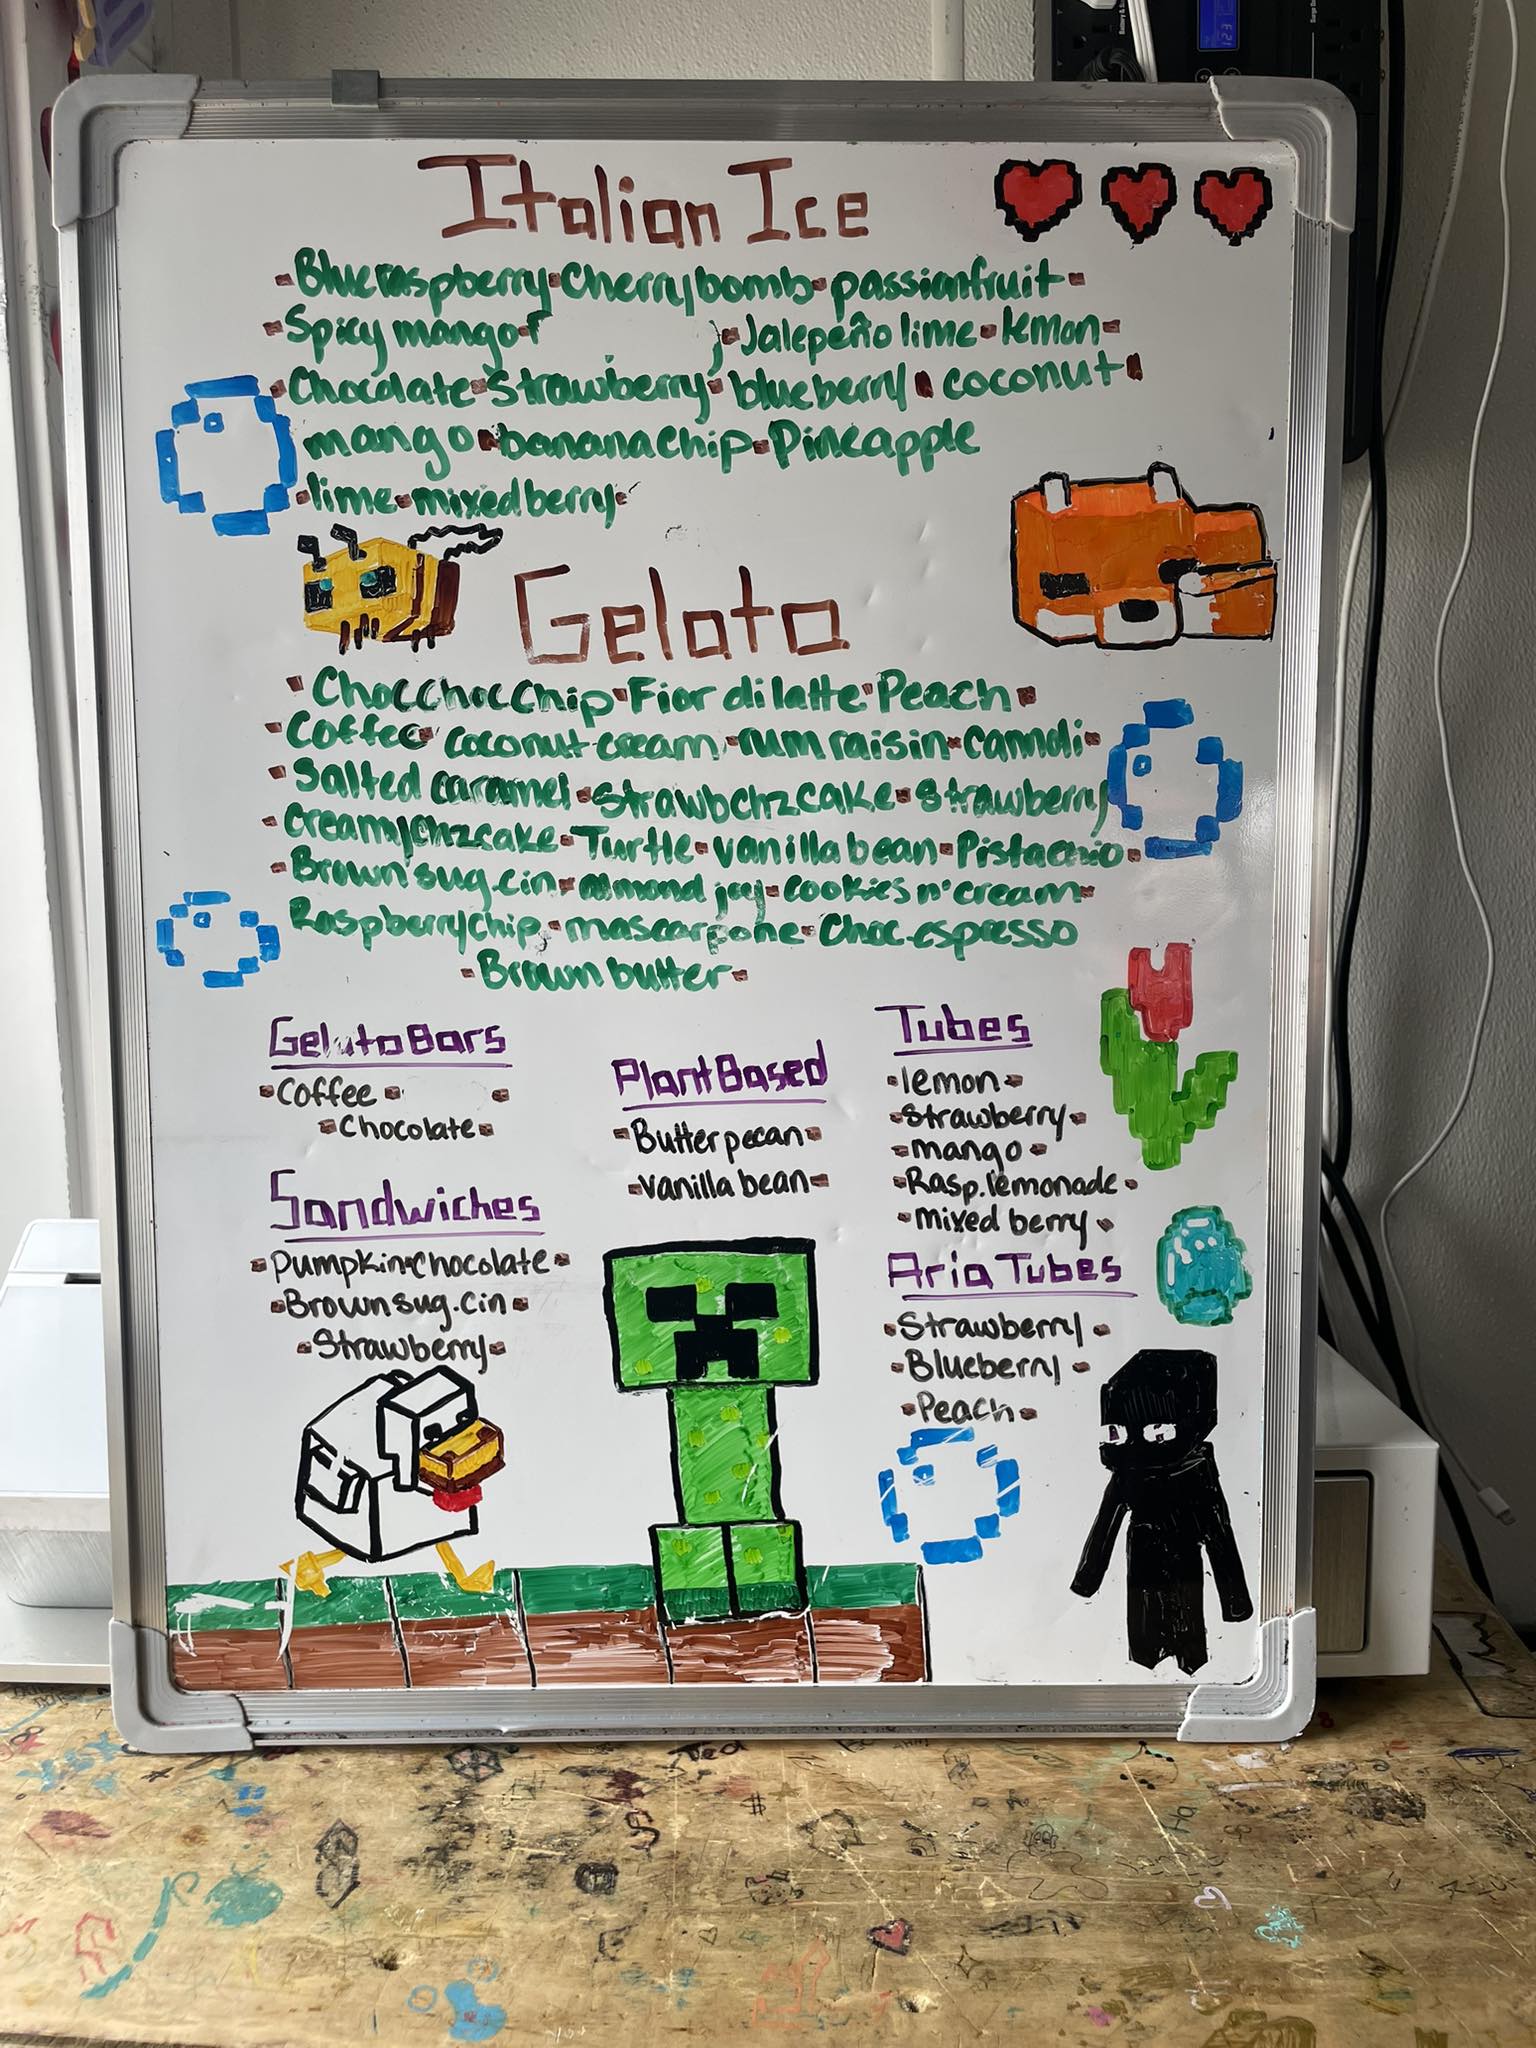 Italian Ice
▪Blueraspberry▪Cherrybomb▪passionfruit▪
▪Spicy mango▪ ▪Jalepeño lime▪lemon▪
▪Chocolate▪Strawberry▪blueberry▪coconut▪
mango▪bananachip▪Pineapple
▪lime▪mixedberry▪
Gelato
▪ChocChocChip▪Fior di latte▪Peach▪
▪Coffee▪coconut cream▪rum raisin▪Cannoli▪
▪Salted caramel▪StrawbchzCake▪Strawberry
▪Creamychzcake▪Turtle▪vanilla bean▪Pistachio▪
▪Brown sug.cin▪almond joy▪cookies n' cream▪
Raspberrychip▪mascarpone▪Choc.espresso
▪Brown butter▪
Gelato Bars
▪Coffee▪ ▪
▪Chocolate▪
Sandwiches
▪Pumpkin▪Chocolate▪
▪Brown sug.cin▪
▪Strawberry▪
Plant Based
▪Butter pecan▪
▪vanilla bean▪
Tubes
▪lemon▪
▪strawberry▪
▪mango▪
▪Rasp.lemonade▪
▪mixed berry▪
Aria Tubes
▪Strawberry▪
▪Blueberry▪
▪Peach▪